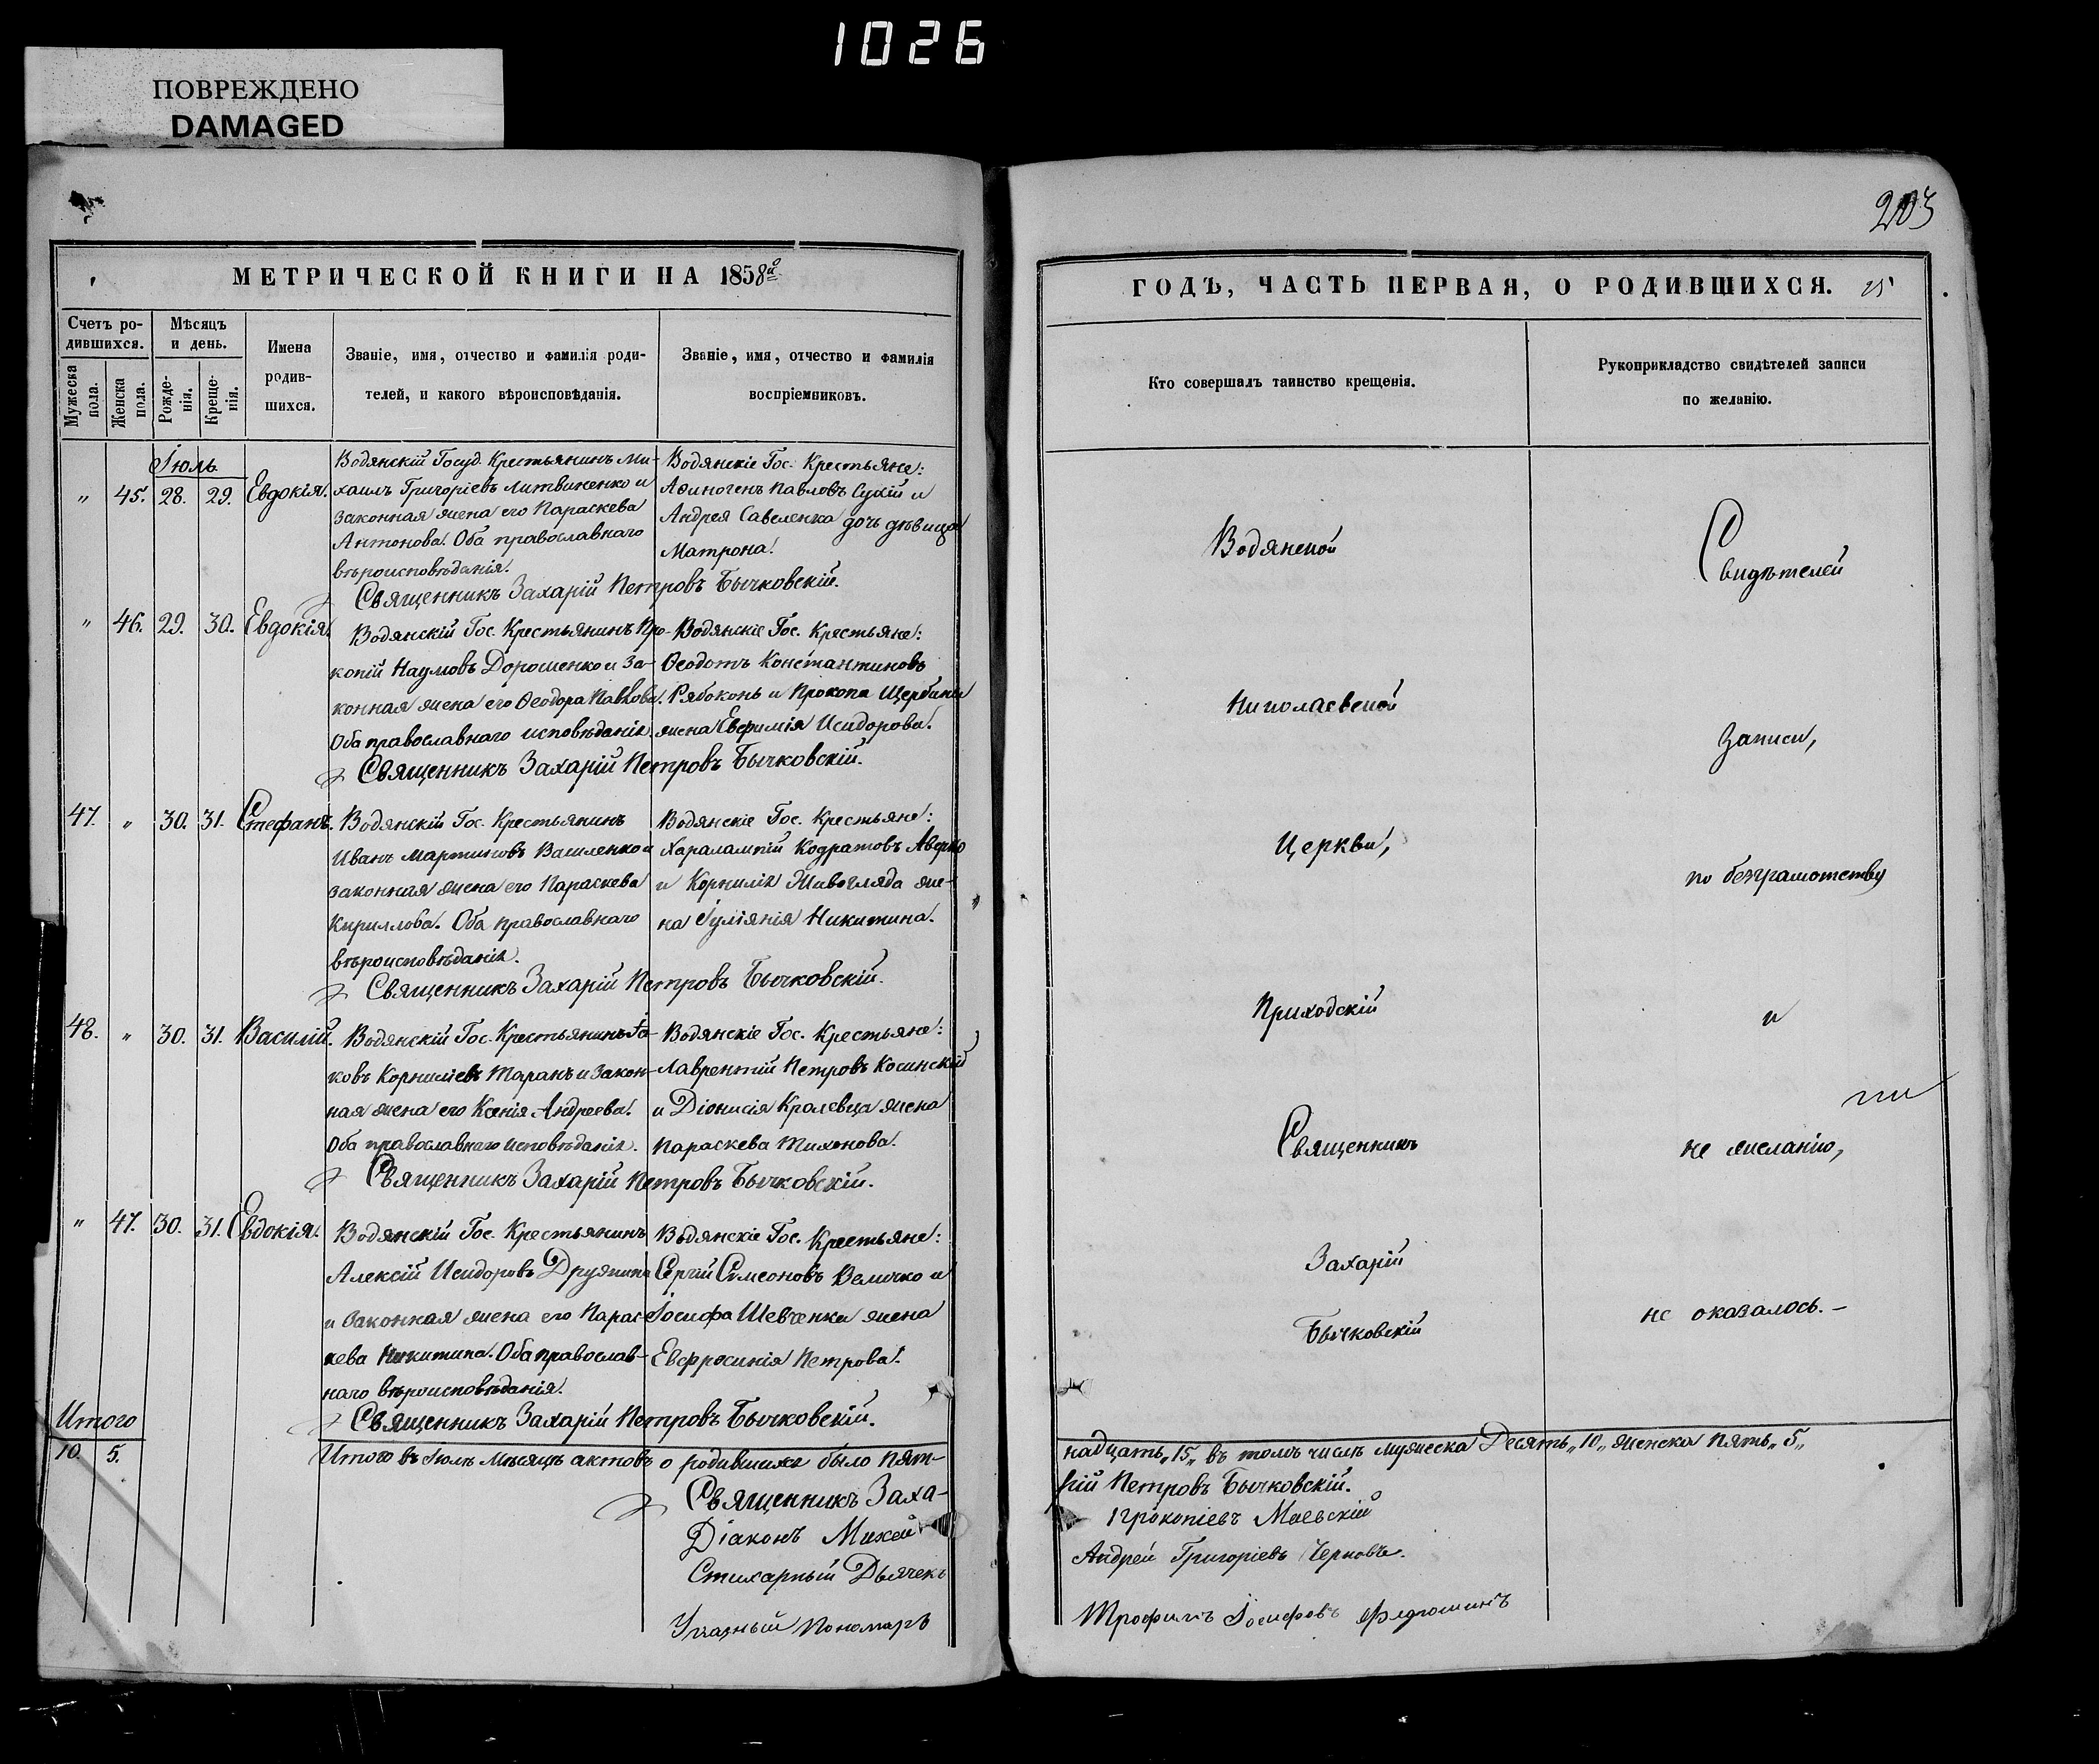 1026
ПОВРЕЖДЕНО
DAMAGED
203
МЕТРИЧЕСКОЙ КНИГИ НА 1858й
Счетъ ро-
дившихся.
Мѣсяцъ
и день.
Мужеска
пола.
Женска
пола.
Рожде-
нія.
Креще-
нія.
Имена
родив-
шихся.
Званіе, имя, отчество и фамилія роди-
телей, и какого вѣроисповѣданія.
Званіе, имя, отчество и фамилія
воспріемниковъ.
Іюль
" 45. 28. 29. Евдокія.
Водянскій Госуд. Крестьянинъ Ми-
хаилъ Григоріевъ Литвиненко и
законная жена его Параскева
Антонова. Оба православнаго
вѣроисповѣданія.
Водянскіе Гос. Крестьяне:
Аѳиногенъ Павловъ Сухій и
Андрея Савеленка дочь дѣвица
Матрона.
Священникъ Захарій Петровъ Бычковскій.
" 46. 29. 30. Евдокія.
Водянскій Гос. Крестьянинъ Про-
копій Наумовъ Дорошенко и за-
конная жена его Ѳеодора Павлова.
Оба православнаго исповѣданія.
Водянскіе Гос. Крестьяне:
Ѳеодотъ Константиновъ
Рябоконь и Прокопа Щербины
жена Евфимія Исидорова.
Священникъ Захарій Петровъ Бычковскій.
47. " 30. 31. Стефанъ.
Водянскій Гос. Крестьянинъ
Иванъ Мартиновъ Василенко и
законная жена его Параскева
Кириллова. Оба православнаго
вѣроисповѣданія.
Водянскіе Гос. Крестьяне:
Харалампій Кодратовъ Аверко
и Корнилія Живогляда же-
на Іуліянія Никитина.
Священникъ Захарій Петровъ Бычковскій.
48. " 30. 31. Василій.
Водянскій Гос. Крестьянинъ Іа-
ковъ Корниліевъ Таранъ и закон-
ная жена его Ксенія Андреева.
Оба православнаго исповѣданія.
Водянскіе Гос. Крестьяне:
Лаврентій Петровъ Косинскій
и Діонисія Кролевца жена
Параскева Тихонова.
Священникъ Захарій Петровъ Бычковскій.
" 47. 30. 31. Евдокія.
Водянскій Гос. Крестьянинъ
Алексій Исидоровъ Дружина
и законная жена его Парас-
кева Никитина. Оба православ-
наго вѣроисповѣданія.
Водянскіе Гос. Крестьяне:
Сергій Симеоновъ Величко и
Іосифа Шевченка жена
Евфросинія Петрова.
Священникъ Захарій Петровъ Бычковскій.
Итого
10. 5.
Итого въ Іюлѣ мѣсяцѣ актовъ о родившихся было пят-
Священникъ Заха-
Діаконъ Михей
Стихарный Дьячекъ
Указный Пономарь
ГОДЪ, ЧАСТЬ ПЕРВАЯ, О РОДИВШИХСЯ. 25
Кто совершалъ таинство крещенія.
Рукоприкладство свидѣтелей записи
по желанію.
Водянской
Николаевской
Церкви,
Приходскій
Священникъ
Захарій
Бычковскій
Свидѣтелей
Записи,
по безграмотству
и
не желанію,
не оказалось. –
надцать „15„ въ томъ числѣ мужеска Десять „10„ женска пять „5„
рій Петровъ Бычковскій.
Прокопіевъ Маевскій
Андрей Григоріевъ Черновъ.
Трофимъ Іосифовъ